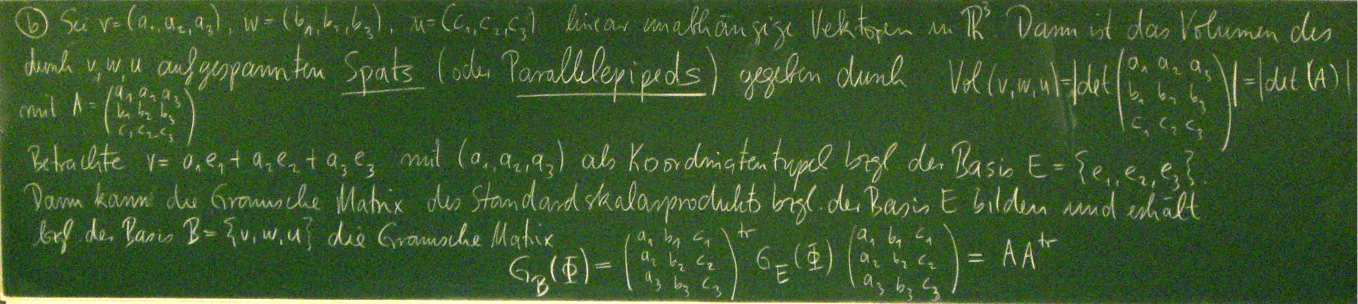 (b) Sei v=(a₁,a₂,a₃), w=(b₁,b₂,b₃), u=(c₁,c₂,c₃) linear unabhängige Vektoren in ℝ³. Dann ist das Volumen des
durch v,w,u aufgespannten Spats (oder Parallelepipeds) gegeben durch Vol(v,w,u)=|det(a₁ a₂ a₃ / b₁ b₂ b₃ / c₁ c₂ c₃)|=|det(A)|
mit A=(a₁ a₂ a₃ / b₁ b₂ b₃ / c₁ c₂ c₃)
Betrachte v=a₁e₁+a₂e₂+a₃e₃ mit (a₁,a₂,a₃) als Koordinatentupel bzgl der Basis E={e₁,e₂,e₃}.
Dann kann die Gramsche Matrix des Standardskalarprodukts bzgl. der Basis E bilden und erhält
bzgl. der Basis B={v,w,u} die Gramsche Matrix
G_B(Φ)=(a₁ b₁ c₁ / a₂ b₂ c₂ / a₃ b₃ c₃)^tr G_E(Φ) (a₁ b₁ c₁ / a₂ b₂ c₂ / a₃ b₃ c₃) = AA^tr